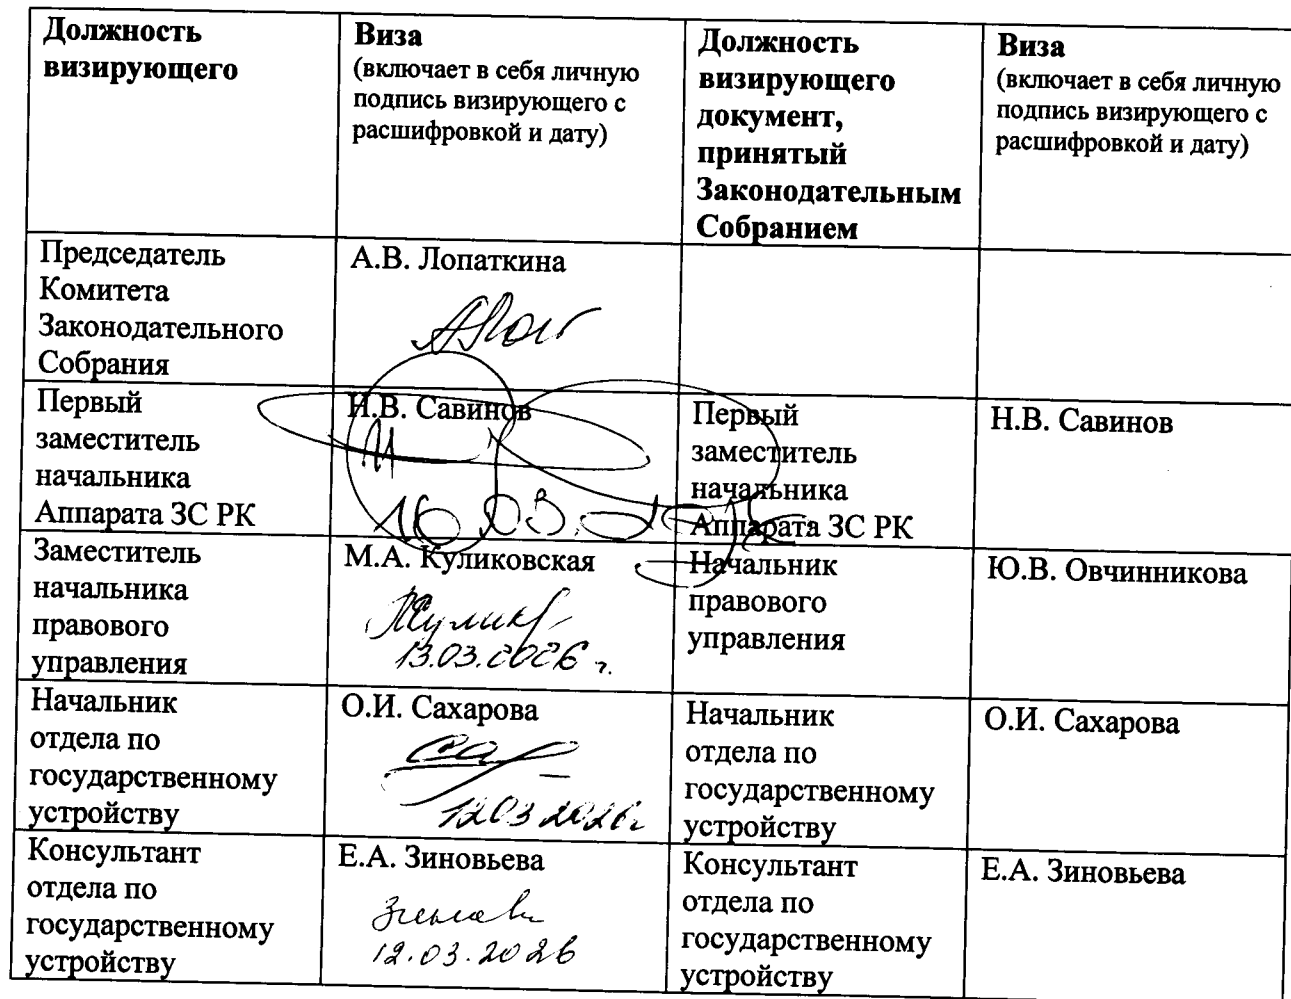 Должность
визирующего
Виза
(включает в себя личную
подпись визирующего с
расшифровкой и дату)
Должность
визирующего
документ,
принятый
Законодательным
Собранием
Виза
(включает в себя личную
подпись визирующего с
расшифровкой и дату)
Председатель
Комитета
Законодательного
Собрания
А.В. Лопаткина
Первый
заместитель
начальника
Аппарата ЗС РК
Н.В. Савинов
16.03.
Первый
заместитель
начальника
Аппарата ЗС РК
Н.В. Савинов
Заместитель
начальника
правового
управления
М.А. Куликовская
13.03.2026 г.
Начальник
правового
управления
Ю.В. Овчинникова
Начальник
отдела по
государственному
устройству
О.И. Сахарова
12.03.2026г
Начальник
отдела по
государственному
устройству
О.И. Сахарова
Консультант
отдела по
государственному
устройству
Е.А. Зиновьева
12.03.2026
Консультант
отдела по
государственному
устройству
Е.А. Зиновьева